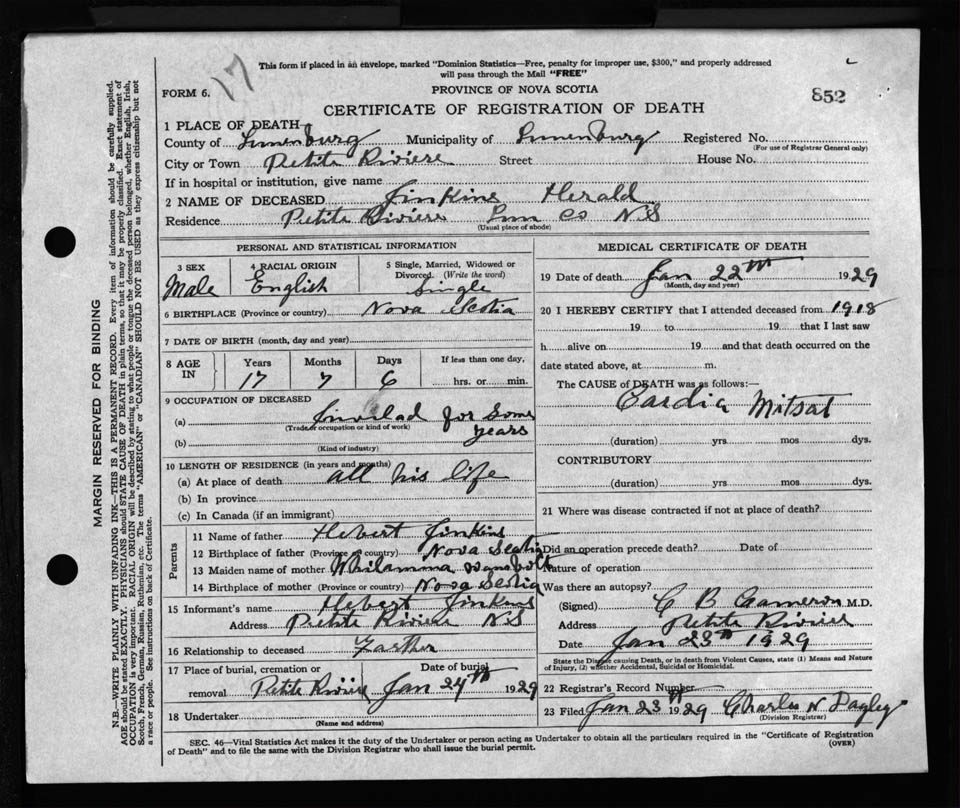 This form if placed in an envelope, marked "Dominion Statistics—Free, penalty for improper use, $300," and properly addressed
will pass through the Mail "FREE"
17
FORM 6.
PROVINCE OF NOVA SCOTIA
852
CERTIFICATE OF REGISTRATION OF DEATH
1 PLACE OF DEATH—
County of Lunenburg Municipality of Lunenburg Registered No.
(For use of Registrar General only)
City or Town Petite Riviere Street House No.
If in hospital or institution, give name
2 NAME OF DECEASED Jinkins Herald
Residence Petite Riviere Lun Co N.S
(Usual place of abode)
PERSONAL AND STATISTICAL INFORMATION
3 SEX 4 RACIAL ORIGIN 5 Single, Married, Widowed or Divorced. (Write the word)
Male English Single
6 BIRTHPLACE (Province or country) Nova Scotia
7 DATE OF BIRTH (month, day and year)
8 AGE IN Years Months Days If less than one day,
17 7 6 hrs. or min.
9 OCCUPATION OF DECEASED
(a) Invelad for Some years
(Trade or occupation or kind of work)
(b)
(Kind of industry)
10 LENGTH OF RESIDENCE (in years and months)
(a) At place of death all his life
(b) In province
(c) In Canada (if an immigrant)
Parents
11 Name of father Hebert Jinkins
12 Birthplace of father (Province or country) Nova Scotia
13 Maiden name of mother
14 Birthplace of mother (Province or country) Nova Scotia
15 Informant's name Hebert Jinkins
Address Petite Riviere N.S
16 Relationship to deceased Farther
17 Place of burial, cremation or removal Date of burial
Petite Riviere Jan 24th 1929
18 Undertaker
(Name and address)
MEDICAL CERTIFICATE OF DEATH
19 Date of death Jan 22th 1929
(Month, day and year)
20 I HEREBY CERTIFY that I attended deceased from 1918
19 to 19 that I last saw
h alive on 19 and that death occurred on the
date stated above, at m.
The CAUSE OF DEATH was as follows:—
Cardia Mitsat
(duration) yrs mos dys.
CONTRIBUTORY
(duration) yrs mos dys.
21 Where was disease contracted if not at place of death?
Did an operation precede death? Date of
Nature of operation
Was there an autopsy?
(Signed) C B Cameron M.D.
Address Petite Riviere
Date Jan 23th 1929
State the Disease causing Death, or in death from Violent Causes, state (1) Means and Nature
of Injury, (2) whether Accidental, Suicidal or Homicidal.
22 Registrar's Record Number
23 Filed Jan 23th 1929 Charles N
(Division Registrar)
SEC. 46—Vital Statistics Act makes it the duty of the Undertaker or person acting as Undertaker to obtain all the particulars required in the "Certificate of Registration
of Death" and to file the same with the Division Registrar who shall issue the burial permit.
(OVER)
MARGIN RESERVED FOR BINDING
N.B.—WRITE PLAINLY WITH UNFADING INK—THIS IS A PERMANENT RECORD. Every item of information should be carefully supplied.
AGE should be stated EXACTLY. PHYSICIANS should STATE CAUSE OF DEATH in plain terms, so that it may be properly classified. Exact statement of
OCCUPATION is very important. RACIAL ORIGIN will be described by stating to what people or tongue the deceased person belonged, whether English, Irish,
Scotch, French, German, Russian, Ruthenian, etc. The terms "AMERICAN" or "CANADIAN" SHOULD NOT BE USED as they express citizenship but not
a race or people. See instructions on back of Certificate.